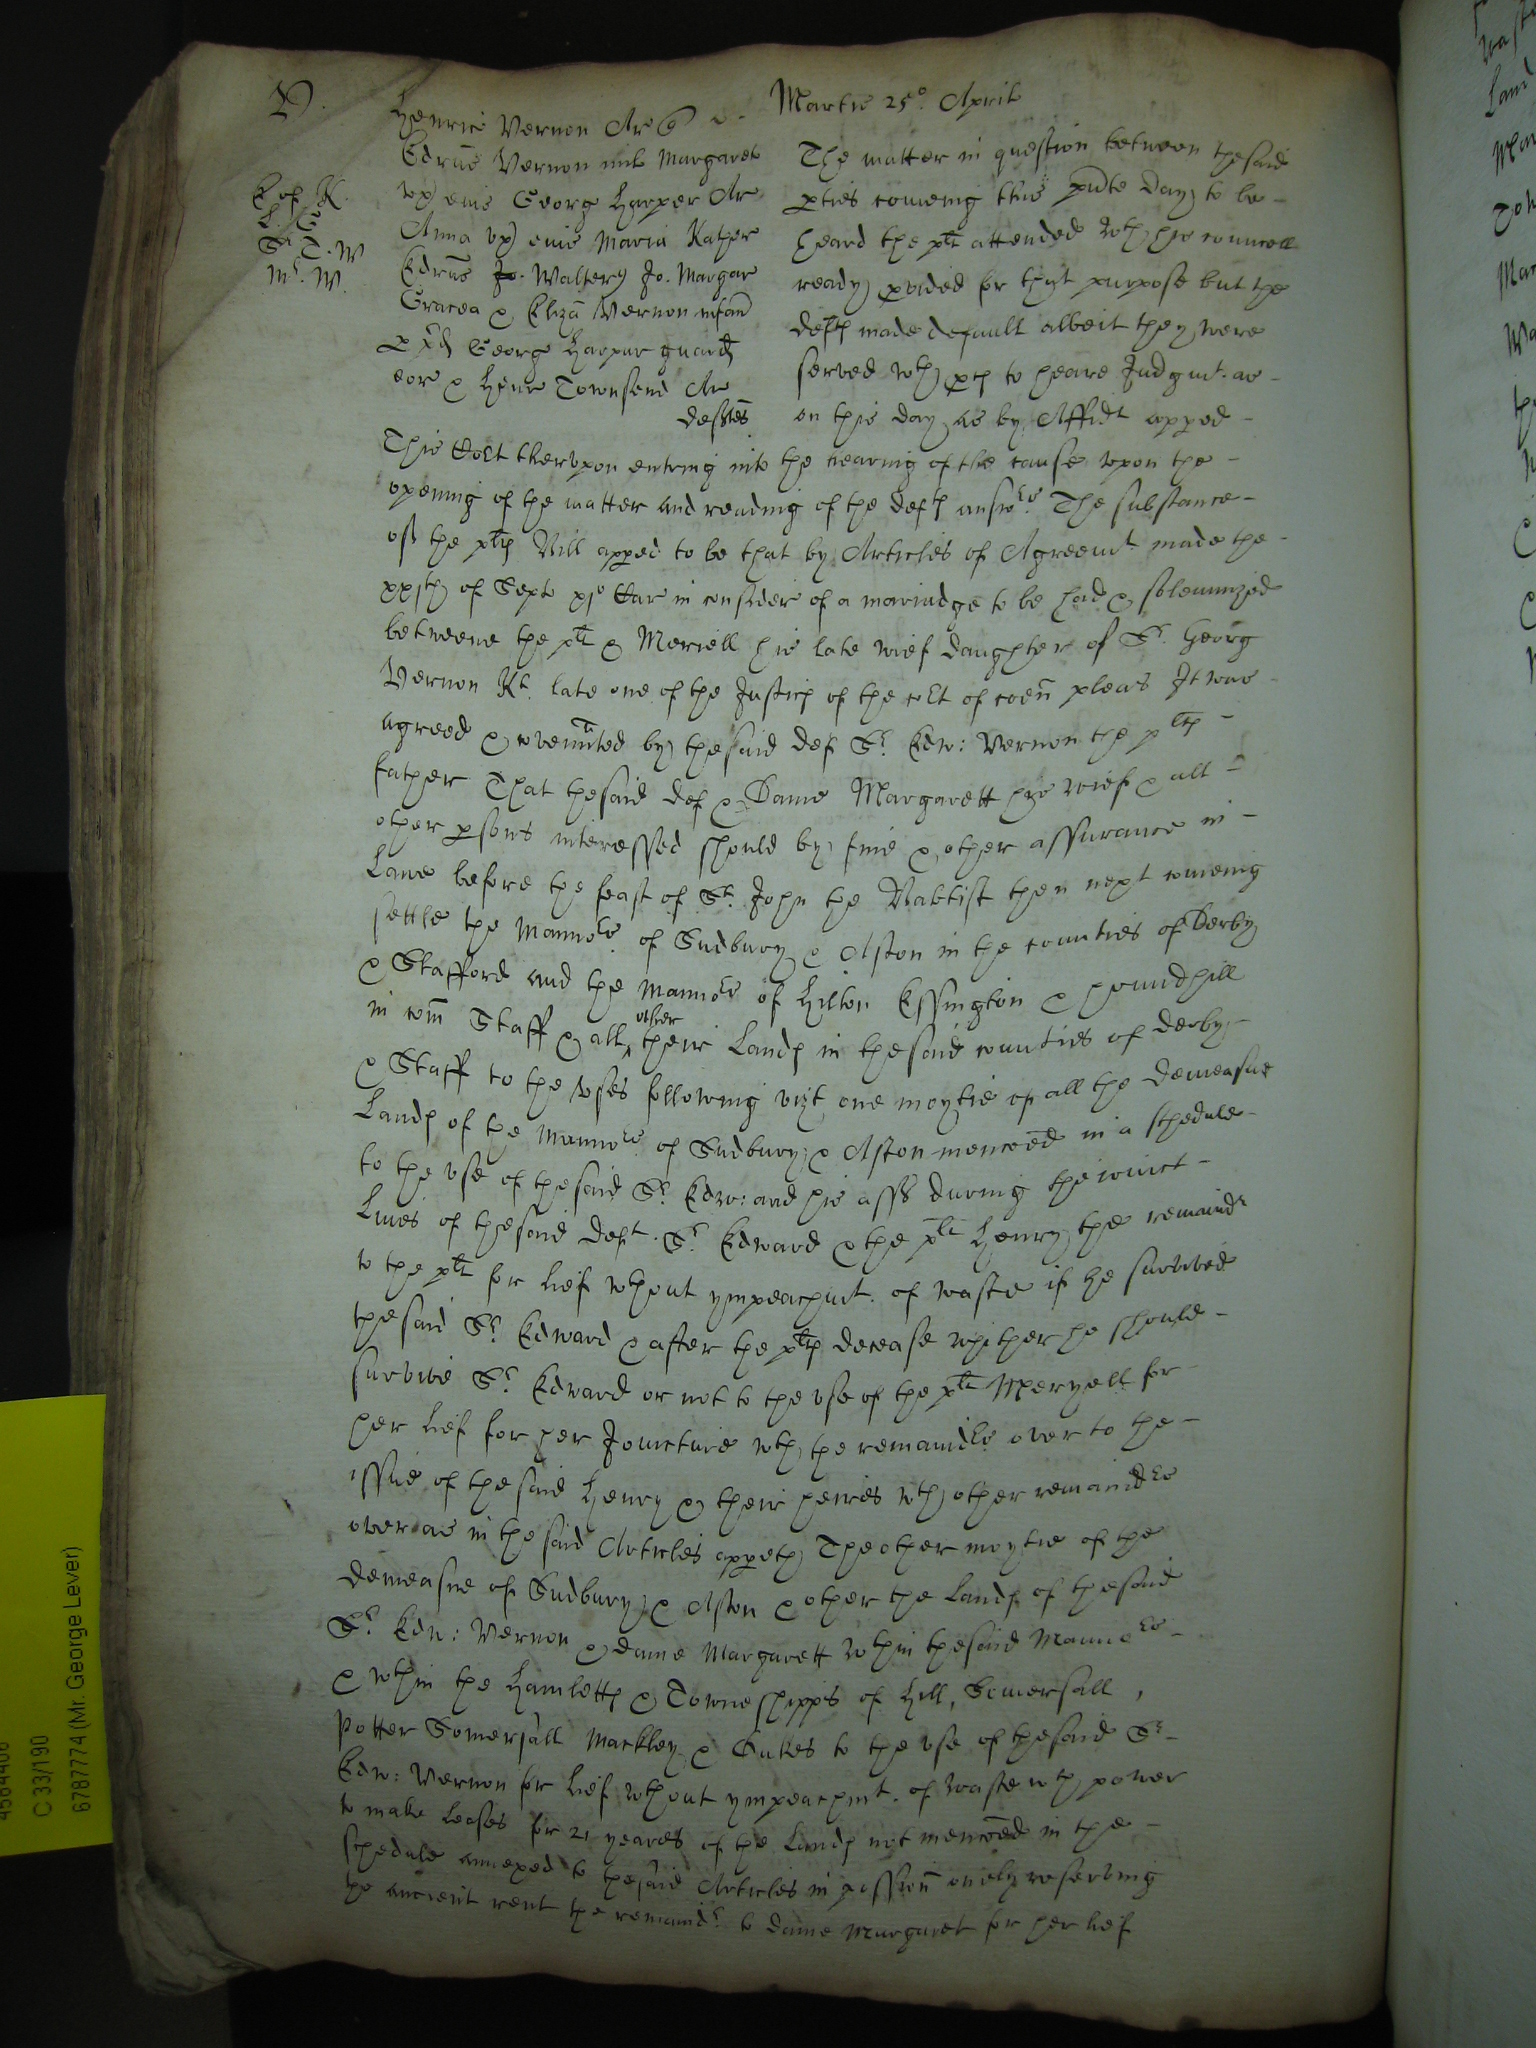 V.
Martis 25o. Aprilis
E of K.
L. C
Sr. T. W
Mr. W.
Henric Vernon Ar
Edrus Vernon mil Margaret
ux eius Georg Harper Ar
Anna ux eius Maria Kather
Edrus Jo. Walterus Jo. Margar
Gracea & Eliza Vernon infan
p pd George Harpur guard
eor & Henr Townsend Ar
deftes
The matter in question between thesaid
pties comeing this pnte day to be -
heard the plt attended wth his councell
ready pvided for that purpose but the
deftes made default albeit they were
served wth pces to heare Judgmt. as -
on this day as by Affidt apped -
This Co:rt therupon entring into the hearing of the cause upon the -
opening of the matter and reading of the deftes answrs. The substance -
of the pltes Bill apped to be that by Articles of Agreemt made the -
xxjth of Sept xjo Car in consider of a mariadge to be had & solemnized
betweene the plt & Meriell his late wief daughter of Sr. Georg
Vernon Kt. late one of the Justices of the co:rt of coen pleas It was -
agreed & covennted by thesaid def Sr. Edw: Vernon the pltes -
father That thesaid def & Dame Margarett his wief & all -
other psons interessed should by fine & other assurance in -
Lawe before the feast of St. John the Babtist then next comeing
settle the Mannors. of Sudbury & Aston in the counties of Derby
& Stafford and the Mannors of Hilton Essington & houndhill
in com Staff & all other their Landes in thesaid counties of derby -
& Staff to the uses following vizt one moytie of all the demeasne
Landes of the Mannors of Sudbury & Aston mencoed in a schedule -
to the use of thesaid Sr. Edw: and his asss during the ioinct -
Lives of thesaid deft. Sr. Edward & the plt Henry the remaindr
to the plt for lief wthout ympeachmt. of waste if he survived
thesaid Sr. Edward & after the pltes decease whither he should -
survive Sr. Edward or not to the use of the plt Meryell for -
her lief for her Joincture wth the remaindrs over to the -
issue of thesaid Henry & their heires wth other remaindrs
over as in thesaid Articles appeth The other moytie of the
demeasne of Sudbury & Aston & other the Landes of thesaid
Sr. Edw: Vernon & dame Margarett wthin thesaid Mannors -
& wthin the Hamlettes & Towneshipps of Hill, Somersall,
Potter Somersall Mackley & Oakes to the use of thesaid Sr -
Edw: Vernon for lief wthout ympeachmt. of waste wth power
to make leases for 21 yeares of the Landes not mencoed in the -
schedule annexed to thesaid Articles in possion onely reserving
the ancient rent the remaindr. to dame Margaret for her lief
C 33/190
6787774 (Mr. George Lever)